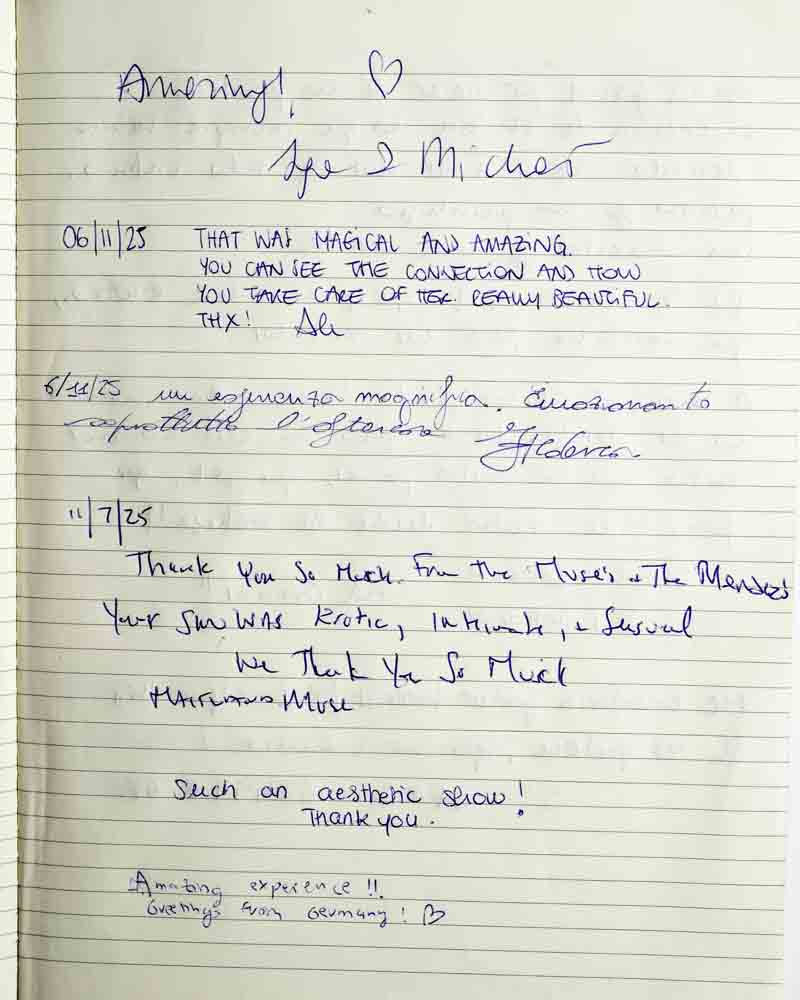 Amazing! ♡
& Michał
06/11/25 THAT WAS MAGICAL AND AMAZING.
YOU CAN SEE THE CONNECTION AND HOW
YOU TAKE CARE OF HER. REALLY BEAUTIFUL.
THX!
6/11/25 un esperienza magnifica. Emozionante
soprattutto Federica
11/7/25
Thank You So Much. From The Muse's & The Mendez's
Your Show WAS Erotic, Intimate, & Sensual
We Thank You So Much
Muse
Such an aesthetic show!
Thank you.
Amazing experence!!
Greetings from Germany! ♡